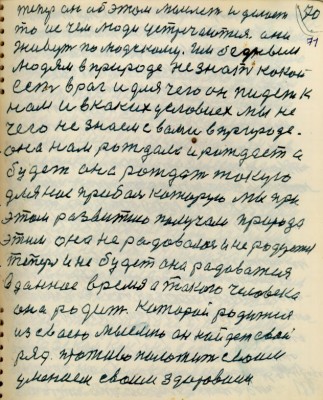 70
71
тепер он об этом мыслет и делает
то и чем люди устречаются. они
живут по людскому. Им бедным
людям в природе не знат какой
есть враг и для чего он идет к
нам и в каких условиех мы не
чего не знаем с вами в природе.
она нам рождала и рождает а
будет она рождат такую
для нас прибал которую мы при
этом развитию получам природа
этим она не радовалас и не радуется
тепер и не будет она радоватся
в данное время а такого человека
она родит который родится
из своею мыслию он найдет свой
ряд. противо положит своим
умением своим здоровием